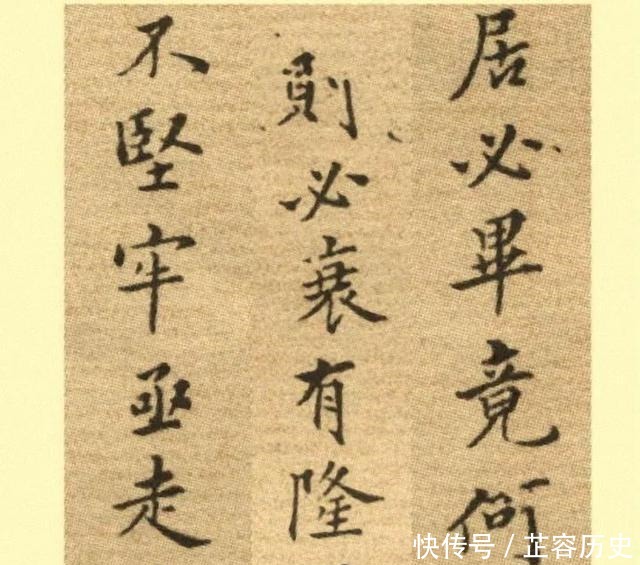 居必畢竟何
則必衰有隆
不堅牢亟走
快传号／芷容历史